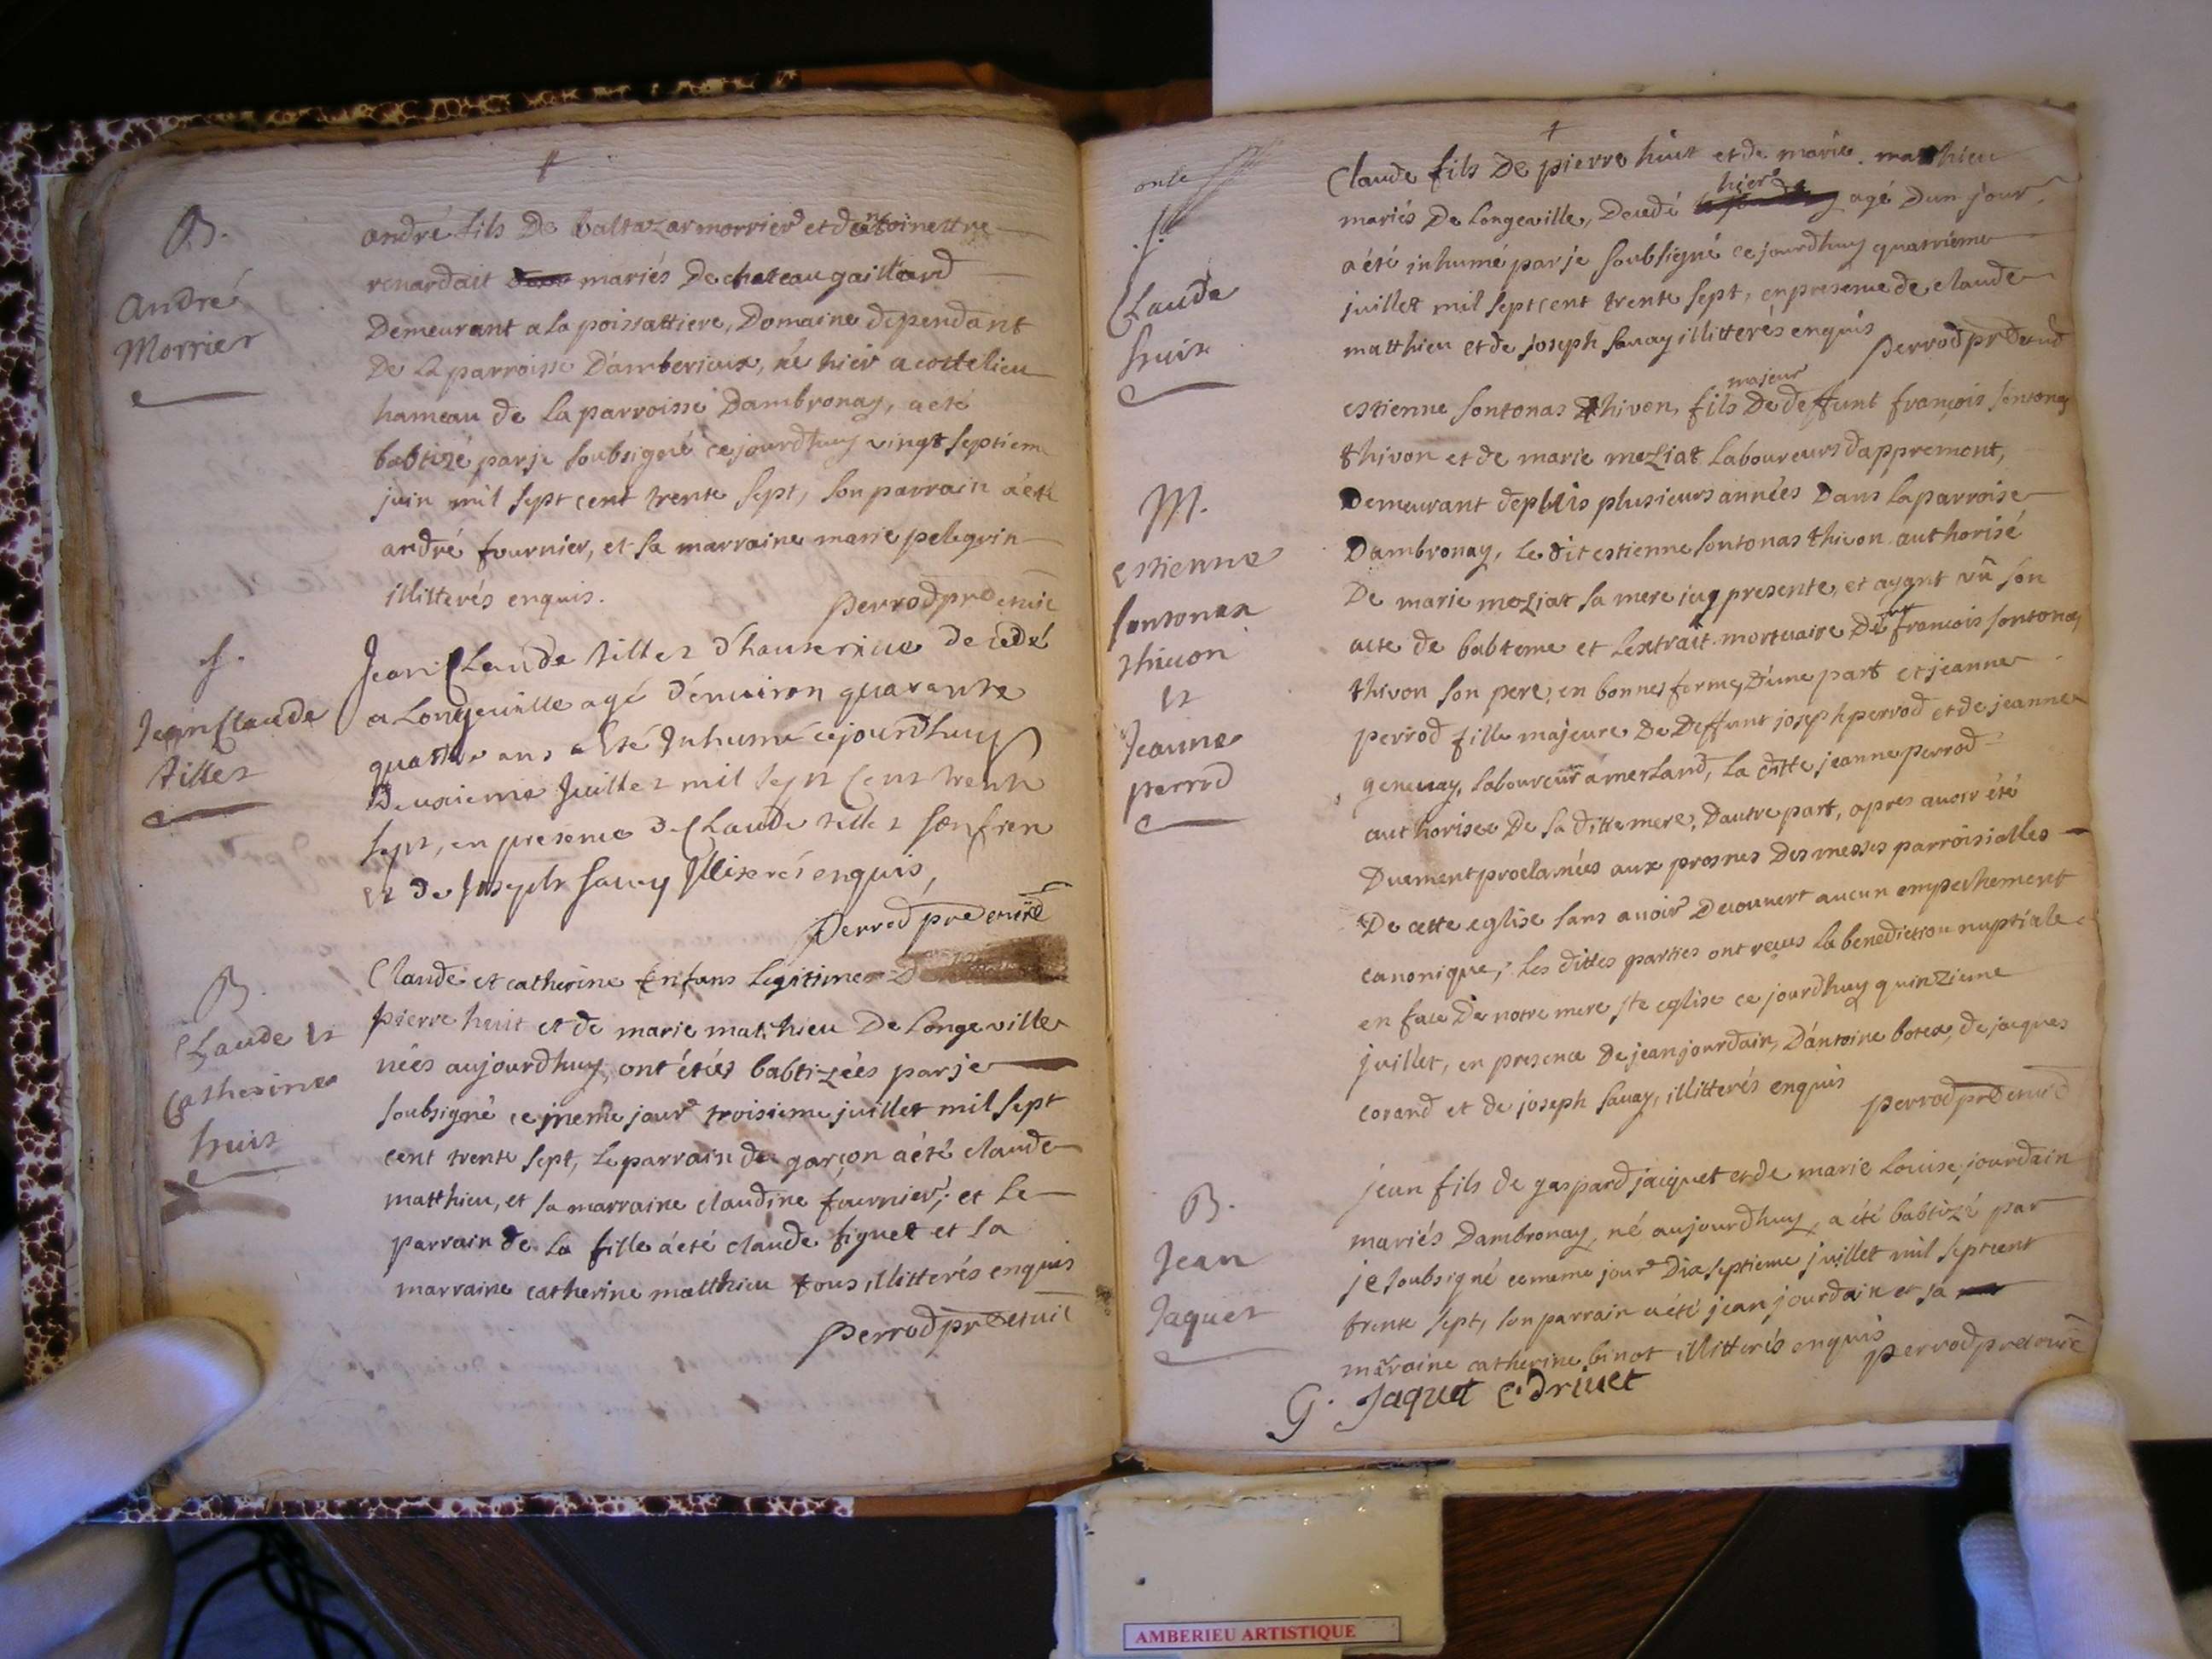 B.
André
Morrier
andré fils De baltazar morrier et de antoinettre
renardait mariés De chateau gaillard
Demeurant a la poissattiere, Domaine dependant
De La parroisse D'amberieux, né hier a cottelieu
hameau de la parroisse Dambronay, a eté
babtizé par je soubsigné cejourdhuy vingt septiem
juin mil sept cent trente sept, son parrain a eté
andré fournier, et sa marraine marie pelegrin
illitterés enquis.
perrod pre et vic
S.
Jean Claude
tillet
Jean Claude tillet d'hauterive decedé
a Longeville agé d'environ quarante
quattre ans a Eté Inhumé cejourdhuy
Deuxieme Juillet mil sept Cent trente
sept, en presence de Claude tillet son frere
et de Joseph Savey Illiterés enquis,
Perrod pre et vic
B.
Claude et
Catherine
huit
Claude et catherine Enfans Legitimes D
pierre huit et de marie mathieu De Longeville
nées aujourdhuy, ont étés babtizéés par je
soubsigné ce meme jour troisieme juillet mil sept
cent trente sept, Le parrain du garçon a été claude
matthieu, et sa marraine claudine fournier; et Le
parrain de La fille a eté claude figuet et sa
marraine catherine matthieu tous illitterés enquis
perrod pre et vic
onze
S.
Claude
huit
Claude fils De pierre huit et de marie matthieu
mariés De Longeville, Decedé hier agé Dun jour
a été inhumé par je soubsigné cejourdhuy quatrieme
juillet mil sept cent trente sept, en presence de claude
matthieu et de joseph savay illitterés enquis
perrod pre et vic
M.
Estienne
fontonax
thivon
et
Jeanne
perrod
estienne fontonas thivon, fils majeur De deffunt françois fontonas
thivon et de marie moZiat Laboureurs dappremont,
Demeurant depuis plusieurs années Dans La parroise
Dambronay, Le dit estienne fontonas thivon authorisé
De marie moZiat sa mere icy presente, et ayant vû son
acte de babteme et L'extrait mortuaire De françois fontonas
thivon son pere, en bonnes formes, D'une part et jeanne
perrod fille majeure De Deffunt joseph perrod et de jeanne
genevay, Laboureurs a merland, La ditte jeanne perrod
authorisee De sa ditte mere, Dautre part, apres avoir été
Duement proclamées aux prosnes Des messes parroisialles
De cette eglise sans avoir Decouvert aucun empechement
canonique; Les dittes parties ont reçus La benediction nuptiale
en face De notre mere ste eglise ce jourdhuy quinzieme
juillet, en presence De jean jourdain, D'antoine botex, de jacques
corand et de joseph savay, illitterés enquis
perrod pre et vic
B.
Jean
Jaquet
jean fils de gaspard jacquet et de marie Louise jourdain
mariés Dambronay, né aujourdhuy, a été babtizé par
je soubsigné ce meme jour Dix septieme juillet mil sept cent
trente sept, son parrain a été jean jourdain et sa
marraine catherine binot illitterés enquis
perrod pre et vic
G. Jaquet C. drivet
AMBERIEU ARTISTIQUE